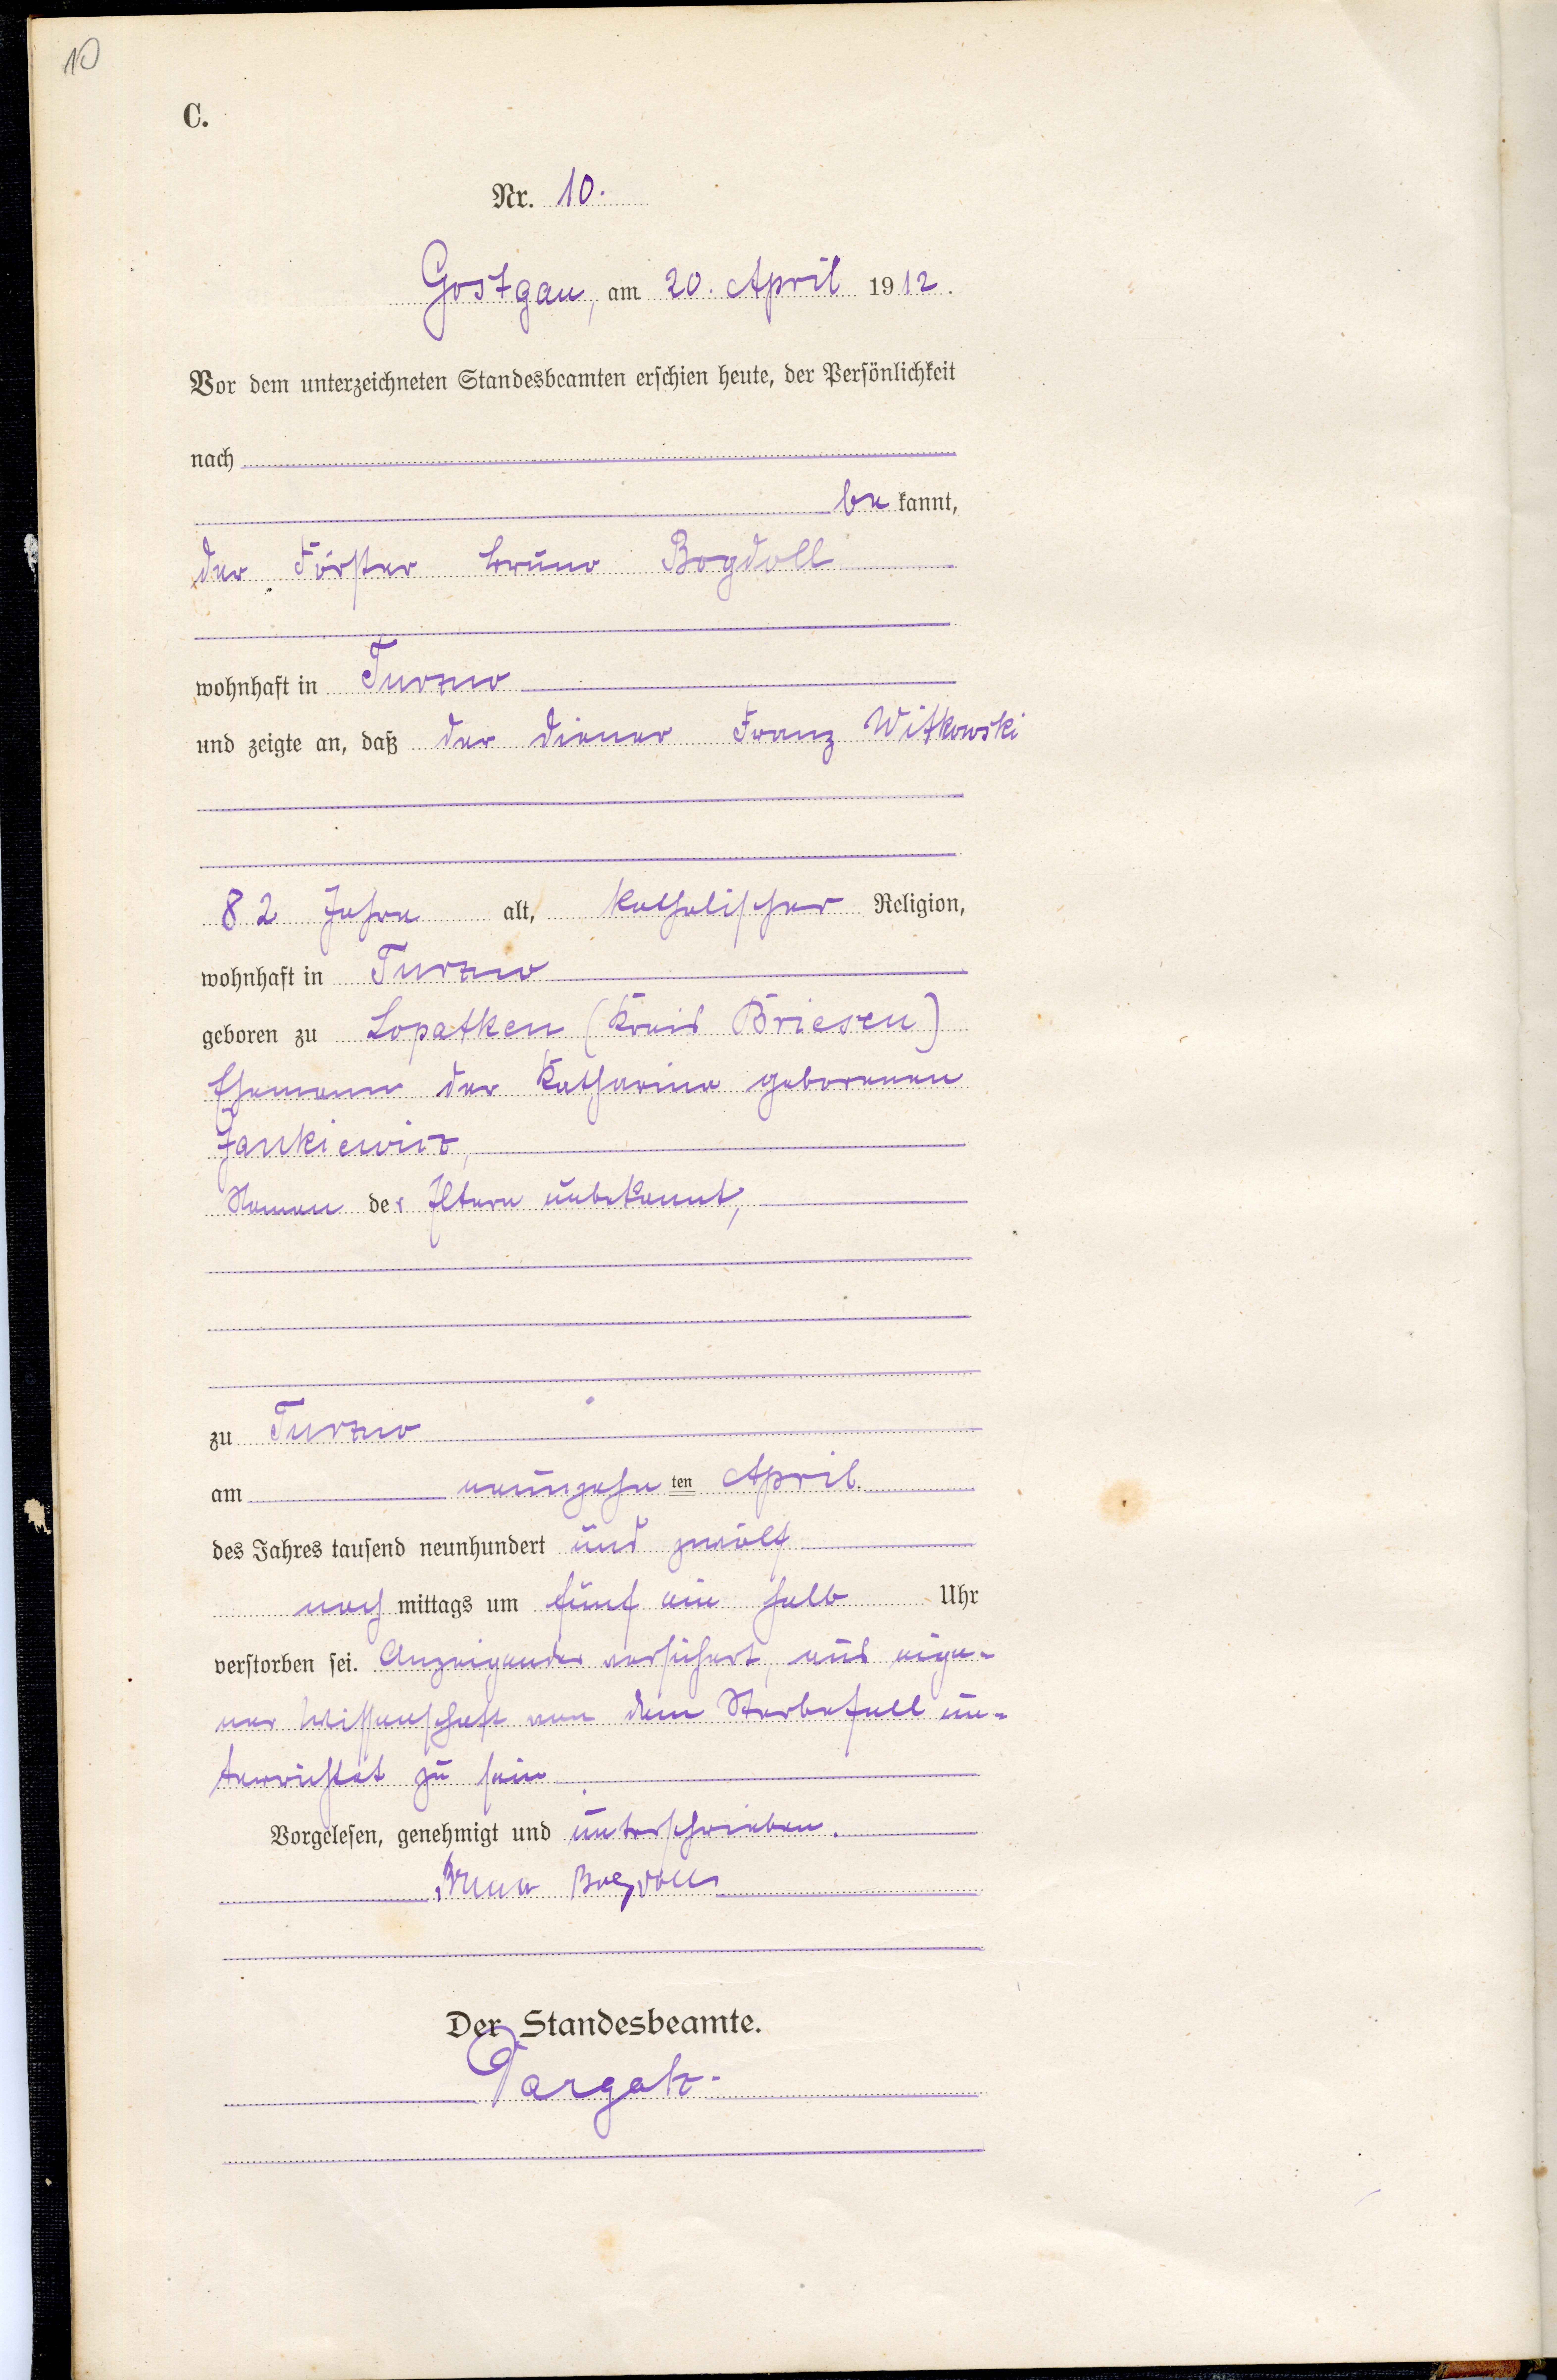 10
C.
Nr. 10.
Gostgau, am 20. April 1912.
Vor dem unterzeichneten Standesbeamten erschien heute, der Persönlichkeit
nach
be kannt,
der Förster Bruno Bogdoll
wohnhaft in Turzno
und zeigte an, daß der Diener Franz Witkowski
82 Jahre alt, katholischer Religion,
wohnhaft in Turzno
geboren zu Lopatken (Kreis Briesen)
Ehemann der Katharina geborenen
Jankiewicz,
Namen der Eltern unbekannt,
zu Turzno
am neunzehn ten April
des Jahres tausend neunhundert und zwölf
nach mittags um fünf ein halb Uhr
verstorben sei. Anzeigender versichert, aus eige-
ner Wissenschaft von dem Sterbefall un-
terrichtet zu sein.
Vorgelesen, genehmigt und unterschrieben.
Bruno Bogdoll
Der Standesbeamte.